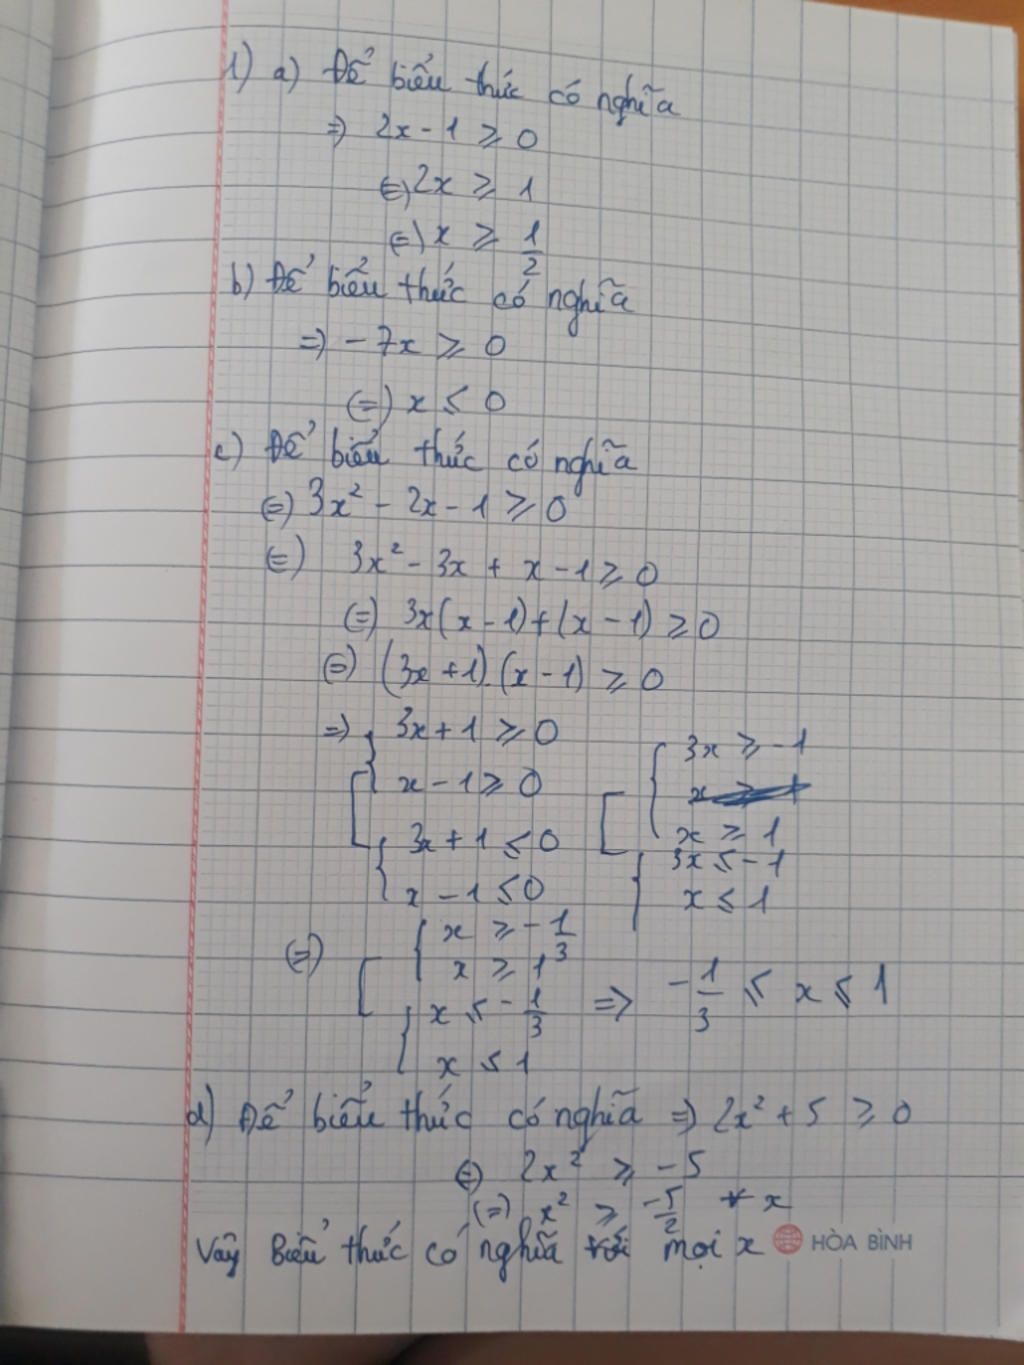 1) a) Để biểu thức có nghĩa
=) 2x - 1 ≥ 0
(=) 2x ≥ 1
(=) x ≥ 1/2
b) Để biểu thức có nghĩa
=) - 7x ≥ 0
(=) x ≤ 0
c) Để biểu thức có nghĩa
(=) 3x² - 2x - 1 ≥ 0
(=) 3x² - 3x + x - 1 ≥ 0
(=) 3x(x - 1) + (x - 1) ≥ 0
(=) (3x + 1).(x - 1) ≥ 0
=) 3x + 1 ≥ 0
x - 1 ≥ 0
3x + 1 ≤ 0
x - 1 ≤ 0
3x ≥ - 1
x ≥ 1
3x ≤ - 1
x ≤ 1
(=) x ≥ - 1/3
x ≥ 1
x ≤ - 1/3
x ≤ 1
=) - 1/3 ≤ x ≤ 1
d) Để biểu thức có nghĩa =) 2x² + 5 ≥ 0
(=) 2x² ≥ - 5
(=) x² ≥ -5/2 ∀ x
Vậy Biểu thức có nghĩa với mọi x
HÒA BÌNH